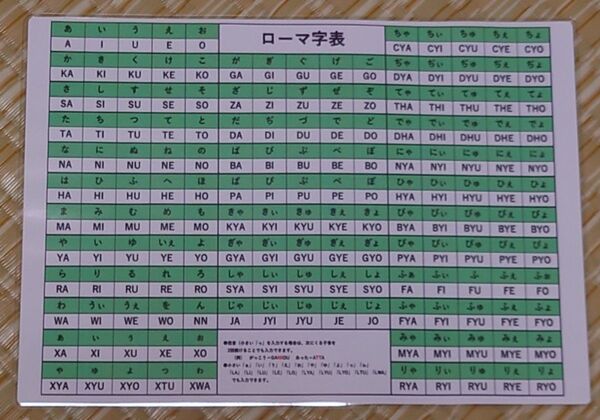 あ い う え お ローマ字表 ちゃ ちぃ ちゅ ちぇ ちょ
A I U E O CYA CYI CYU CYE CYO
か き く け こ が ぎ ぐ げ ご ぢゃ ぢぃ ぢゅ ぢぇ ぢょ
KA KI KU KE KO GA GI GU GE GO DYA DYI DYU DYE DYO
さ し す せ そ ざ じ ず ぜ ぞ てゃ てぃ てゅ てぇ てょ
SA SI SU SE SO ZA ZI ZU ZE ZO THA THI THU THE THO
た ち つ て と だ ぢ づ で ど でゃ でぃ でゅ でぇ でょ
TA TI TU TE TO DA DI DU DE DO DHA DHI DHU DHE DHO
な に ぬ ね の ば び ぶ べ ぼ にゃ にぃ にゅ にぇ にょ
NA NI NU NE NO BA BI BU BE BO NYA NYI NYU NYE NYO
は ひ ふ へ ほ ぱ ぴ ぷ ぺ ぽ ひゃ ひぃ ひゅ ひぇ ひょ
HA HI HU HE HO PA PI PU PE PO HYA HYI HYU HYE HYO
ま み む め も きゃ きぃ きゅ きぇ きょ びゃ びぃ びゅ びぇ びょ
MA MI MU ME MO KYA KYI KYU KYE KYO BYA BYI BYU BYE BYO
や い ゆ いぇ よ ぎゃ ぎぃ ぎゅ ぎぇ ぎょ ぴゃ ぴぃ ぴゅ ぴぇ ぴょ
YA YI YU YE YO GYA GYI GYU GYE GYO PYA PYI PYU PYE PYO
ら り る れ ろ しゃ しぃ しゅ しぇ しょ ふぁ ふぃ ふ ふぇ ふぉ
RA RI RU RE RO SYA SYI SYU SYE SYO FA FI FU FE FO
わ うぃ うぇ を ん じゃ じぃ じゅ じぇ じょ ふゃ ふぃ ふゅ ふぇ ふょ
WA WI WE WO NN JA JYI JYU JE JO FYA FYI FYU FYE FYO
ぁ ぃ ぅ ぇ ぉ みゃ みぃ みゅ みぇ みょ
XA XI XU XE XO MYA MYI MYU MYE MYO
ゃ ゅ ょ っ ゎ りゃ りぃ りゅ りぇ りょ
XYA XYU XYO XTU XWA RYA RYI RYU RYE RYO
●促音（小さい「っ」を入力する場合は、次にくる子音を
2回続けることでも入力できます。
(例) がっこう→GAKKOU あった→ATTA
●小さい「ぁ」「ぃ」「ぅ」「ぇ」「ぉ」「ゃ」「ゅ」「ょ」「っ」「ゎ」は、
「LA」「LI」「LU」「LE」「LO」「LYA」「LYU」「LYO」「LTU」「LWA」
でも入力できます。